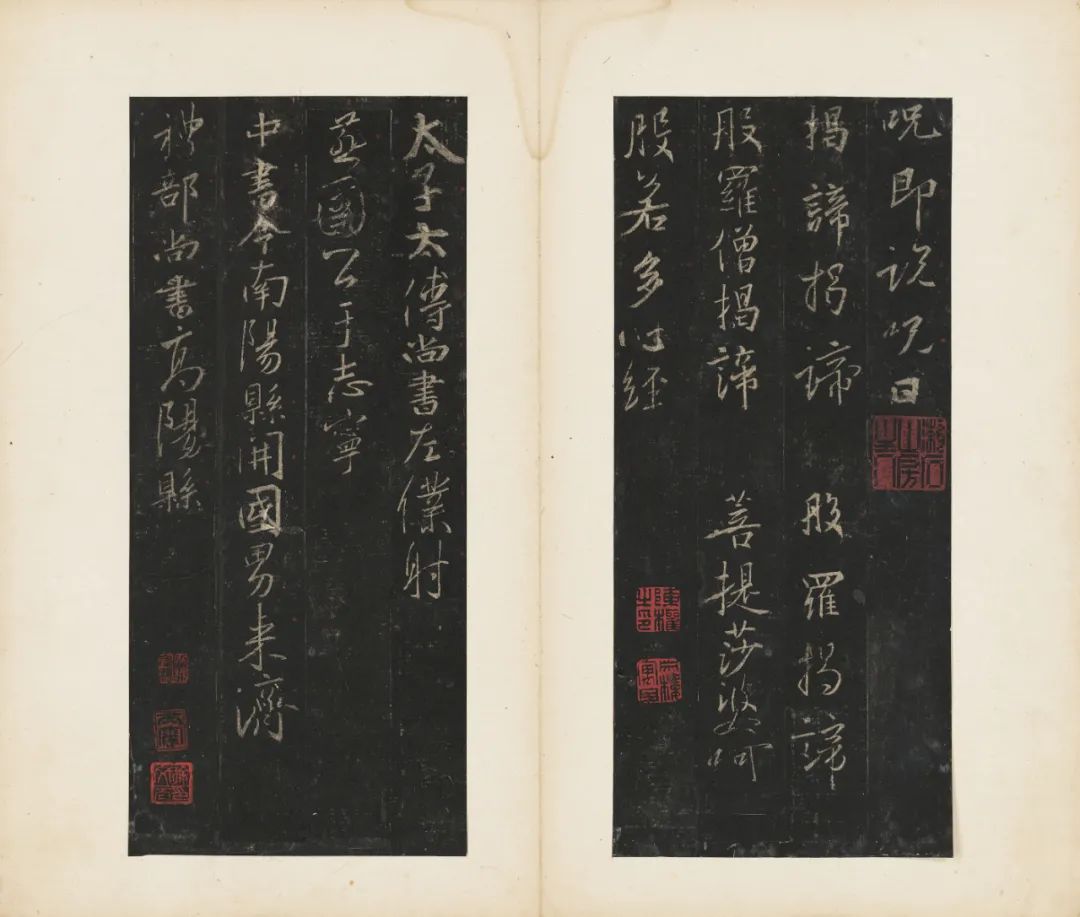 呪即說呪曰
揭諦揭諦 般羅揭諦
般羅僧揭諦 菩提莎婆呵
般若多心經
太子太傅尚書左僕射
燕國公于志寧
中書令南陽縣開國男来濟
礼部尚書高陽縣